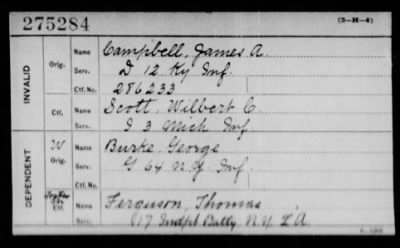 275284
(3-H-4)
INVALID
Orig.
Name Campbell, James A.
Serv. D 12 Ky Inf.
Ctf. No. 286233
Ctf.
Name Scott, Wilbert C.
Serv. I 3 Mich Inf
DEPENDENT
W
Orig.
Name Burke, George
Serv. G 64 N.Y. Inf.
Ctf. No.
Ctf.
Name Ferguson, Thomas
Serv. 17 Indpt Batty N.Y. L.A